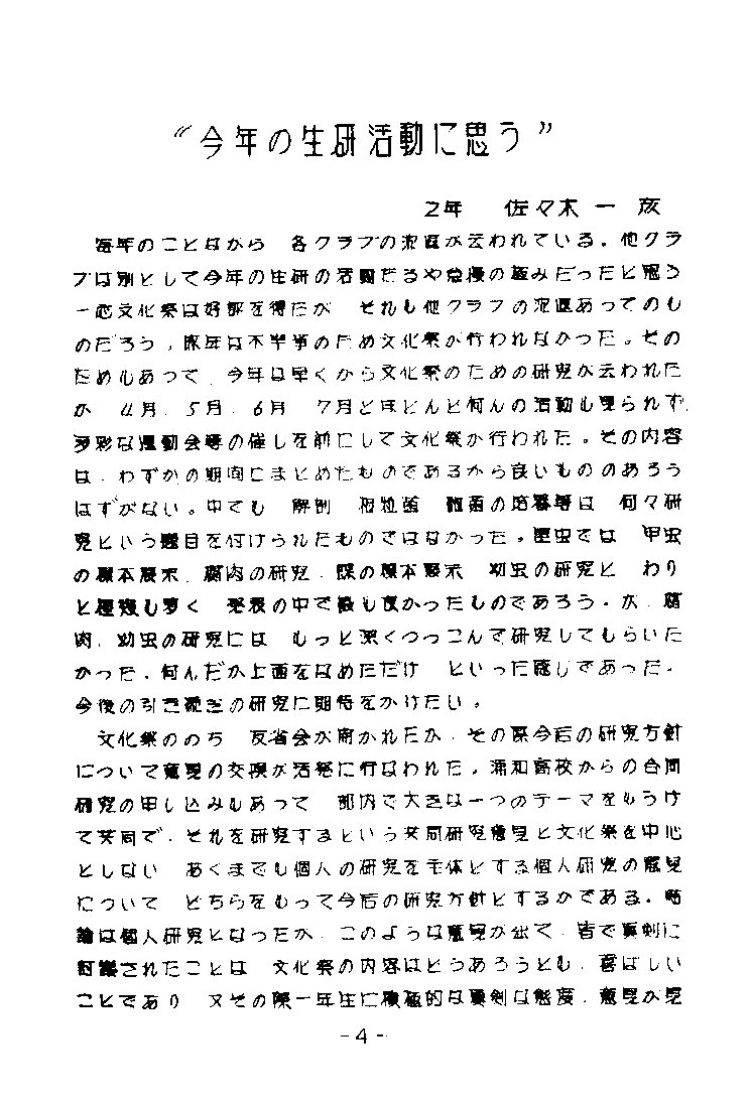 “今年の生研活動に思う”
2年 佐々木 一 彦
毎年のことながら 各クラブの沈滞が云われている。他クラ
ブは別として今年の生研の活動たるや怠慢の極みだったと思う
一応文化祭は好評を得たが それも他クラブの沈滞あってのも
のだろう。昨年は不幸事のため文化祭が行われなかった。その
ためもあって、今年は早くから文化祭のための研究が云われた
が 4月、5月、6月 7月とほとんど何んの活動も見られず、
多彩な運動会等の催しを前にして文化祭が行われた。その内容
は、わずかの期間にまとめたものであるから良いもののあろう
はずがない。中でも 解剖 細菌の培養等は 何々研
究という題目を付けられたものではなかった。昆虫では 甲虫
の標本展示、腐肉の研究、蝶の標本展示 幼虫の研究と わり
と種類も多く 発表の中で最も良かったものであろう。が、腐
肉、幼虫の研究には もっと深くつっこんで研究してもらいた
かった。何んだか上面をなめただけ といった感じであった。
今後の引き続きの研究に期待をかけたい。
文化祭ののち 反省会が開かれたが、その際今后の研究方針
について意見の交換が活発に行なわれた。浦和高校からの合同
研究の申し込みもあって 部内で大きな一つのテーマをもうけ
て共同で、それを研究するという共同研究意見と文化祭を中心
としない あくまでも個人の研究を主体とする個人研究の意見
について どちらをもって今后の研究方針とするかである。結
論は個人研究となったが、このような意見が出て、皆で真剣に
討議されたことは 文化祭の内容はどうあろうとも、喜ばしい
ことであり 又その際一年生に積極的な真剣な態度、意見が見
-4-